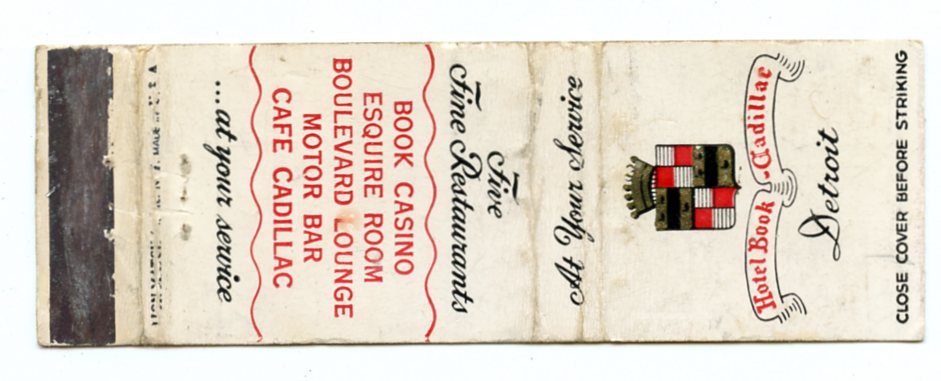 At Your Service
Hotel Book-Cadillac
Detroit
CLOSE COVER BEFORE STRIKING
Five
Fine Restaurants
BOOK CASINO
ESQUIRE ROOM
BOULEVARD LOUNGE
MOTOR BAR
CAFE CADILLAC
...at your service